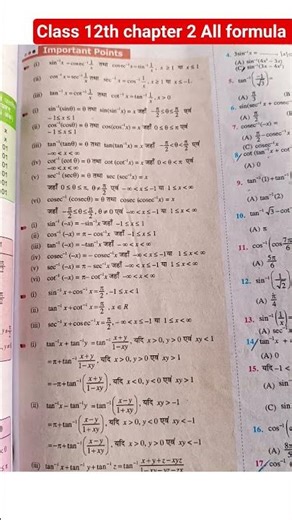 Class 12th chapter 2 All formula
Important Points
(i) sin⁻¹x = cosec⁻¹ 1/x तथा cosec⁻¹x = sin⁻¹ 1/x, x ≥ 1 या x ≤ 1
(ii) cos⁻¹x = sec⁻¹ 1/x तथा sec⁻¹x = cos⁻¹ 1/x, x ≥ 1 या x ≤ -1.
(iii) tan⁻¹x = cot⁻¹ 1/x तथा cot⁻¹x = tan⁻¹ 1/x, x > 0
(i) sin⁻¹(sinθ) = θ तथा sin(sin⁻¹x) = x जहाँ -π/2 ≤ θ ≤ π/2 एवं
-1 ≤ x ≤ 1
(ii) cos⁻¹(cosθ) = θ तथा cos(cos⁻¹x) = x जहाँ 0 ≤ θ ≤ π एवं
-1 ≤ x ≤ 1
(iii) tan⁻¹(tanθ) = θ तथा tan(tan⁻¹x) = x जहाँ -π/2 < θ < π/2 एवं
-∞ < x < ∞
(iv) cot⁻¹(cot θ) = θ तथा cot (cot⁻¹x) = x जहाँ 0 < θ < π एवं
-∞ < x < ∞
(v) sec⁻¹(secθ) = θ तथा sec (sec⁻¹x) = x
जहाँ 0 ≤ θ ≤ π, θ ≠ π/2 एवं -∞ < x ≤ -1 या 1 ≤ x < ∞
(vi) cosec⁻¹(cosecθ) = θ तथा cosec (cosec⁻¹x) = x
जहाँ -π/2 ≤ θ ≤ π/2, θ ≠ 0 एवं -∞ < x ≤ -1 या 1 ≤ x < ∞
(i) sin⁻¹(-x) = -sin⁻¹x जहाँ -1 ≤ x ≤ 1
(ii) cos⁻¹(-x) = π - cos⁻¹x जहाँ -1 ≤ x ≤ 1
(iii) tan⁻¹(-x) = -tan⁻¹x जहाँ -∞ < x < ∞
(iv) cosec⁻¹(-x) = -cosec⁻¹x जहाँ -∞ < x ≤ -1 या 1 ≤ x < ∞
(v) sec⁻¹(-x) = π - sec⁻¹x जहाँ -∞ < x ≤ -1 या 1 ≤ x < ∞
(vi) cot⁻¹(-x) = π - cot⁻¹x जहाँ -∞ < x < ∞
(i) sin⁻¹x + cos⁻¹x = π/2, -1 ≤ x ≤ 1
(ii) tan⁻¹x + cot⁻¹x = π/2, x ∈ R
(iii) sec⁻¹x + cosec⁻¹x = π/2, -∞ < x ≤ -1 या 1 ≤ x < ∞
(i) tan⁻¹x + tan⁻¹y = tan⁻¹ (x+y)/(1-xy), यदि x > 0, y > 0 एवं xy < 1
= π + tan⁻¹ ((x+y)/(1-xy)), यदि x > 0, y > 0 एवं xy > 1
= -π + tan⁻¹ ((x+y)/(1-xy)), यदि x < 0, y < 0 एवं xy > 1
(ii) tan⁻¹x - tan⁻¹y = tan⁻¹ ((x-y)/(1+xy)), यदि xy > -1
= π + tan⁻¹ ((x-y)/(1+xy)), यदि x > 0, y > 0 एवं xy < -1
= -π + tan⁻¹ ((x-y)/(1+xy)), यदि x > 0, y > 0 एवं xy < -1
(iii) tan⁻¹x + tan⁻¹y + tan⁻¹z = tan⁻¹ x+y+z-xyz
4. 3sin⁻¹x =
(A) sin⁻¹(4x³-3x)
(C) sin⁻¹(3x-4x³)
5. tan⁻¹
6. sin(sec⁻¹x + cosec⁻¹
7. cosec⁻¹(-x) =
(A) π/2 - cosec⁻¹x
(C) cosec⁻¹x
8. cot (tan⁻¹x + cot⁻¹
(A) 0
9. tan⁻¹(1) + tan⁻¹
(A) tan⁻¹(2)
10. tan⁻¹√3 - cot⁻¹
(A) π
11. cos⁻¹(cos 7π/6
(A) 5π/6
12. sin⁻¹(1/√2)
(A) π/4
13. sin⁻¹(1/x)
(A) sec⁻¹
14. tan⁻¹x + cot⁻¹
(A) 0
15. यदि -1 <
(A) sin⁻¹
(C) sin
16. cos⁻¹
(A) 8π
17. cos⁻¹